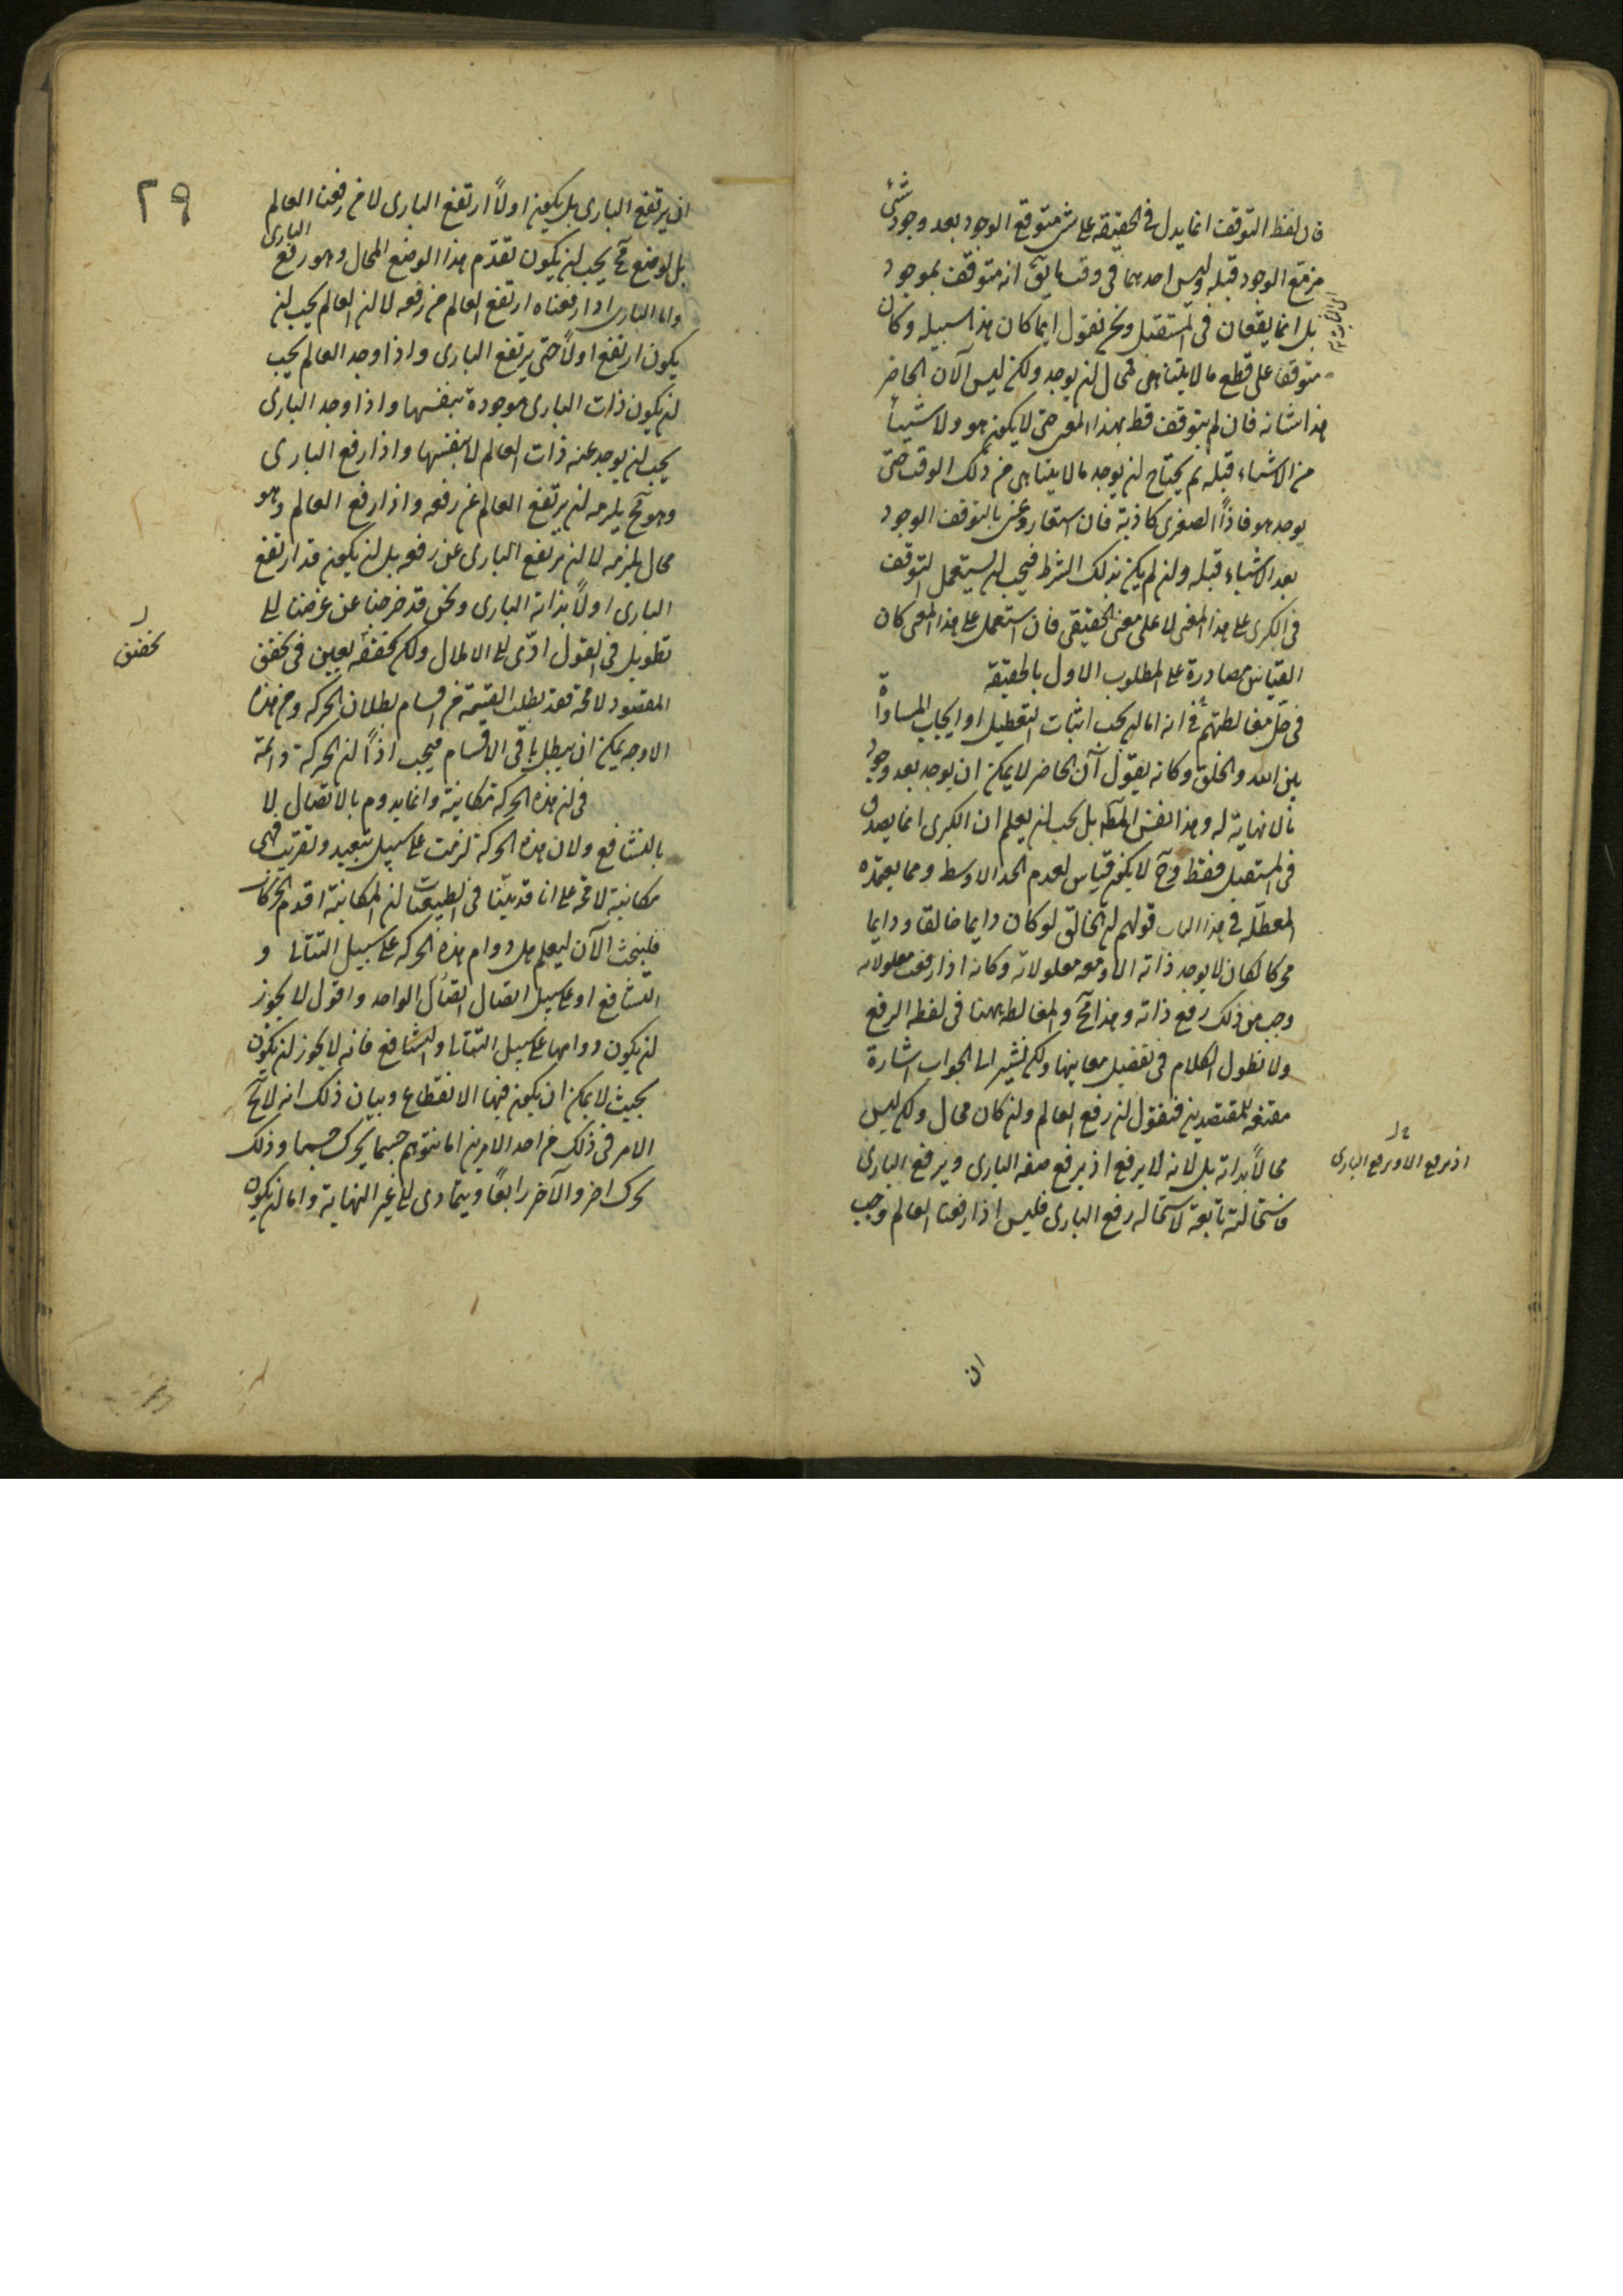 فان لفظ التوقف انما يدل فى الحقيقه على شى متوقع الوجود بعد وجود شئ
مزمع الوجود قبله وليس احدهما فى وقت ما يق انه متوقف بموجود
بل انما يقعان فى المستقبل ونحن نقول ايما كان هذا سبيله وكان
متوقفا على قطع ما لا يتناهى فمحال ان يوجد ولكن ليس الآن الحاضر
هذا شانه فان لم يتوقف قط بهذا المعنى حتى لا يكون هو ولا شيئاً
من الاشياء قبله ثم يحتاج ان يوجد ما لا يتناهى من ذلك الوقت حتى
يوجد هو فاذاً الصغرى كاذبة فان استعار وعنى بالتوقف الوجود
بعد الاشياء قبله وان لم يكن بذلك الشرط فيجب ان يستعمل التوقف
فى الكبرى على هذا المعنى لا على معنى الحقيقى فان استعمل على هذا المعنى كان
القياس مصادرة على المطلوب الاول بالحقيقة
فى حل مغالطتهم فى انه اما ان يجب اثبات التعطيل او ايجاب المساواة
بين الله والخلق وكانه يقول آن الحاضر لا يمكن ان يوجد بعد وجود
ما لا نهاية له وهذا نفس المط بل يجب ان يعلم ان الكبرى انما يصدق
فى المستقبل فقط وح لا يكون قياس لعدم الحد الاوسط ومما يعتمده
المعطله فى هذا الباب قولهم ان الخالق لو كان دايما خالقا ودايما
محركا لكان لا يوجد ذاته الا ومعه معلولاته وكانه اذا رفعت معلولاته
وجب من ذلك رفع ذاته وهذا مح والمغالطه ههنا فى لفظه الرفع
ولا نطول الكلام فى تفصيل معانيها ولكن نشير الى الجواب اشارة
مقنعه للمقتصدين فنقول ان رفع العالم وان كان محال ولكن ليس
محالاً بذاته بل لانه لا يرفع اذ يرفع صفه البارى ويرفع البارى
فاستحالته تابعة لاستحاله رفع البارى فليس اذا رفعنا العالم وجب
اذ يرفع الا ويرفع البارى
ان
٢٩
ان يرتفع البارى بل يكون اولاً ارتفع البارى لا من رفعنا العالم
بل لوضع مح يجب ان يكون تقدم هذا الوضع المحال وهو رفع البارى
واما البارى اذا رفعناه ارتفع العالم من رفعه لا لان العالم يجب ان
يكون ارتفع اولاً حتى يرتفع البارى واذا وجد العالم يجب
ان يكون ذات البارى موجودة بنفسها واذا وجد البارى
يجب ان يوجد عنه ذات العالم لا بنفسها واذا رفع البارى
وهو مح يلزمه ان يرتفع العالم عن رفعه واذا رفع العالم وهو
محال يلزمه لا ان يرتفع البارى عن رفعه بل ان يكون قد ارتفع
البارى اولاً بذاته البارى ونحن قد خرجنا عن غرضنا الى
تطويل فى القول ادى الى الاملال ولكن تحققه يعين فى تحقق
المقصود لا محة فقد بطلت القسمة من اقسام بطلان الحركه ومن هذه
الاوجه يمكن ان يبطل باقى الاقسام فيجب اذاً ان الحركة دائمة
فى ان هذه الحركة مكانية وانما يدوم بالاتصال لا
بالتشافع ولان هذه الحركة لزمت على سبيل تبعيد وتقريب فهى
مكانية لا محة على انا قد بينا فى الطبيعيات ان المكانية اقدم الحركات
فلنبحث الآن ليعلم هل دوام هذه الحركه على سبيل التتالى و
التشافع او على سبيل اتصال اتصال الواحد واقول لا يجوز
ان يكون دوامها على سبيل التتالى والتشافع فانه لا يجوز ان يكون
بحيث لا يمكن ان يكون فيها الانقطاع وبيان ذلك انه لا يخ
الامر فى ذلك من احد الامرين اما نتوهم جسما يحرك جسما وذلك
يحرك اخر والآخر رابعاً ويتمادى الى غير النهاية واما ان يكون
تحقيق